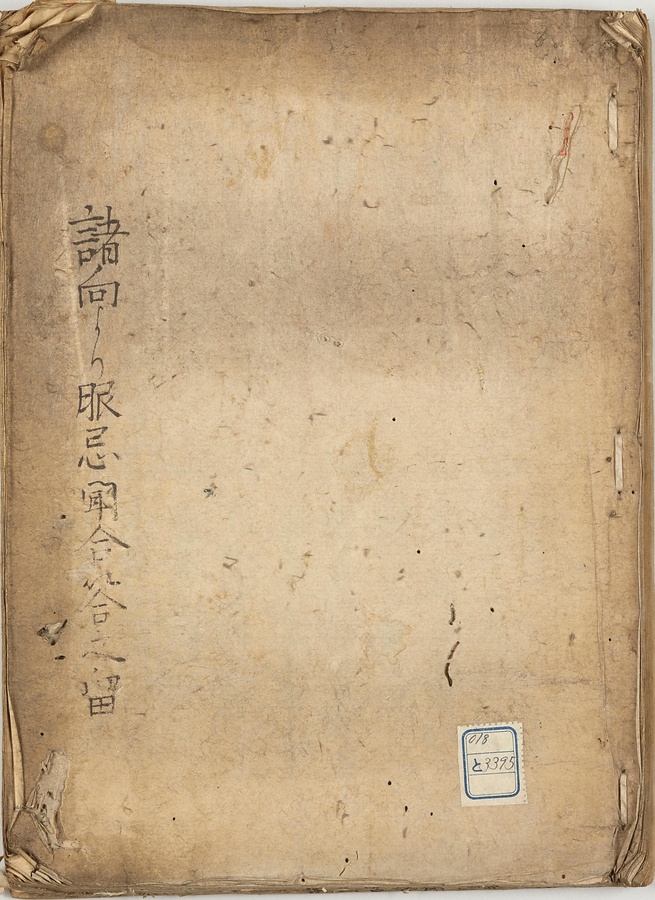 諸向より服忌聞合答之留
018
と3395